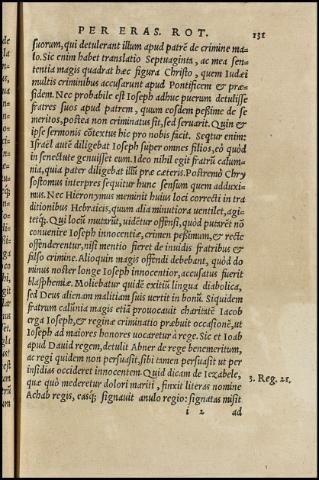 PER ERAS. ROT. 131
suorum, qui detulerant illum apud patrẽ de crimine ma-
lo. Sic enim habet translatio Septuaginta, ac mea sen-
tentia magis quadrat hæc figura Christo, quem Iudæi
multis criminibus accusarunt apud Pontificem & præ-
sidem. Nec probabile est Ioseph adhuc puerum detulisse
fratres suos apud patrem, quum eosdem peßime de se
meritos, postea non criminatus sit, sed seruarit. Quin &
ipse sermonis cõtextus hic pro nobis facit. Sequtur enim:
Israël autẽ diligebat Ioseph super omnes filios, eò quòd
in senectute genuisset eum. Ideo nihil egit fratrũ calum-
nia, quia pater diligebat illũ præ cæteris. Postremò Chry
sostomus interpres sequitur hunc sensum quem adduxi-
mus. Nec Hieronymus meminit huius loci correcti in tra
ditionibus Hebraicis, quum alia minutiora uentilet, agi-
tetq́;. Qui locũ mutarũt, uidẽtur offensi, quòd putarẽt nõ
conuenire Ioseph innocentiæ, crimen peßimum, & recte
offenderentur, nisi mentio fieret de inuidis fratribus &
falso crimine. Alioquin magis offendi debebant, quòd do
minus noster longe Ioseph innocentior, accusatus fuerit
blasphemiæ. Moliebatur quidẽ exitiũ lingua diabolica,
sed Deus alienam malitiam suis uertit in bonũ. Siquidem
fratrum calũnia magis etiã prouocauit charitatẽ Iacob
erga Ioseph, & reginæ criminatio præbuit occasionẽ, ut
Ioseph ad maiores honores uocaretur à rege. Sic et Ioab
apud Dauid regem, detulit Abner de rege benemeritum,
ac regi quidem non persuasit, sibi tamen persuasit ut per
insidias occideret innocentem. Quid dicam de Iezabele,
quæ quò mederetur dolori mariti, finxit literas nomine 3. Reg. 21.
Achab regis, easq́; signauit anulo regio: signatas misit
i 2 ad